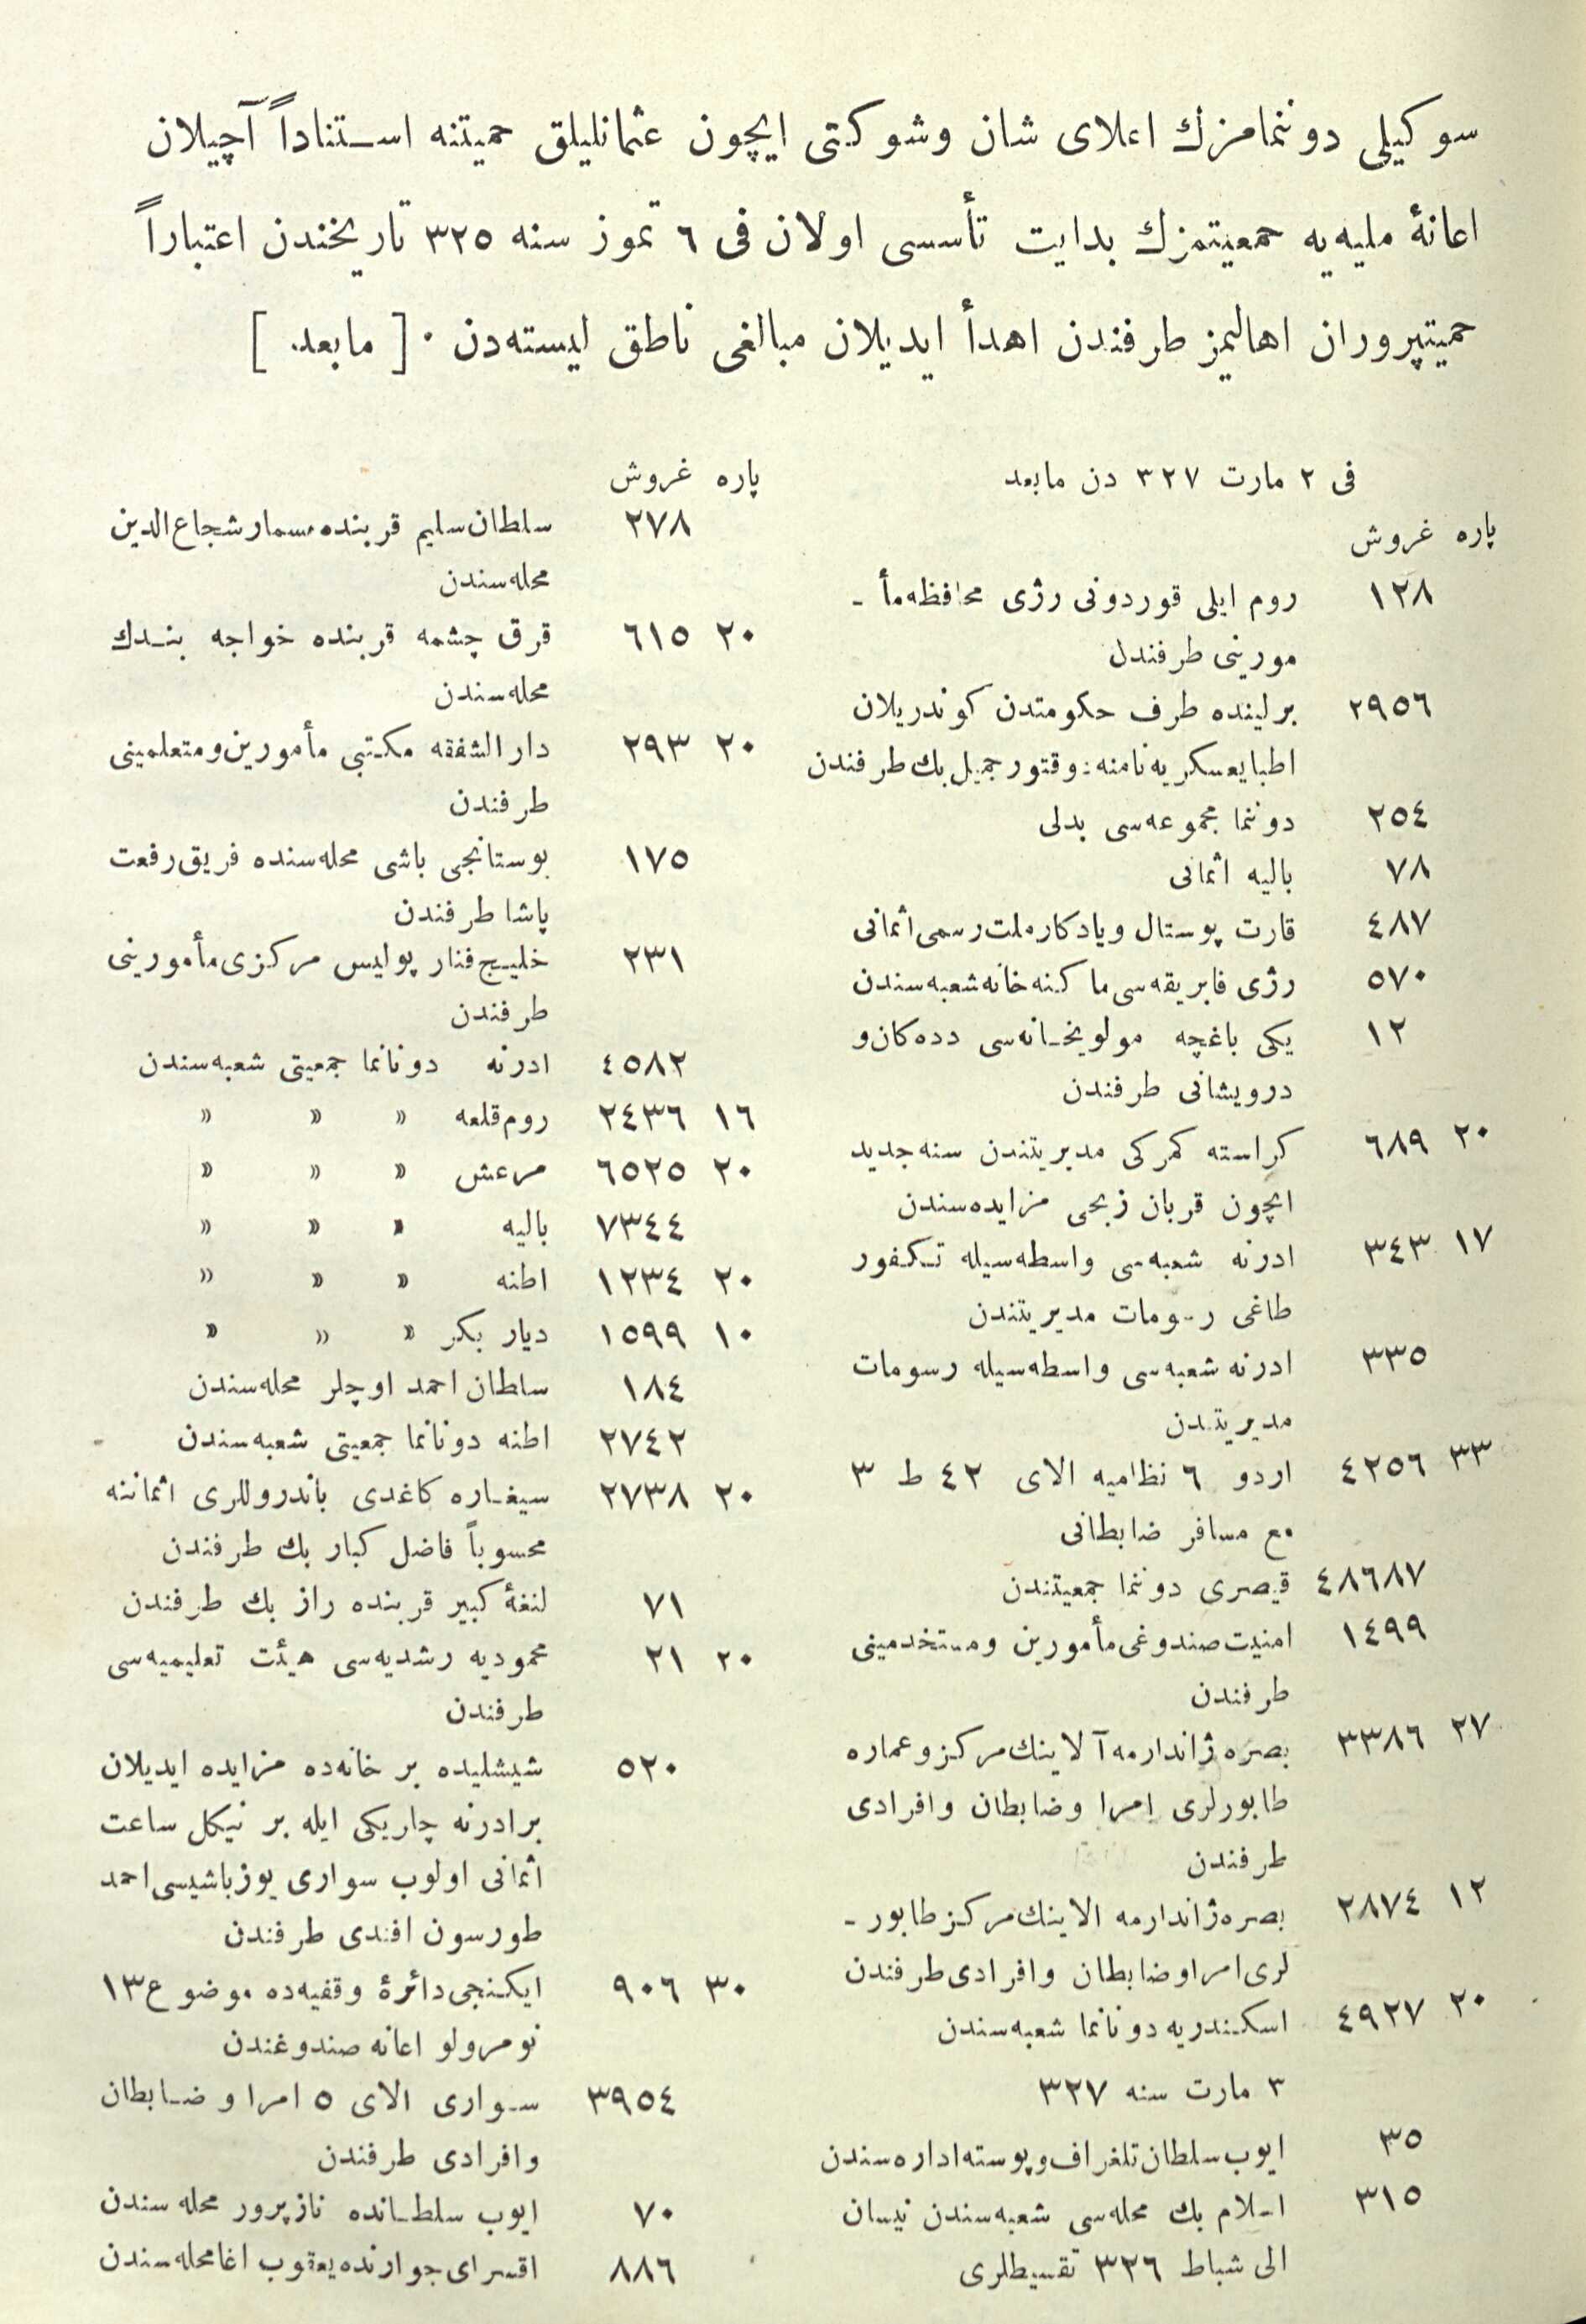 سوكيلى دوننمامزك اعلاى شان وشوكتى ايچون عثمانليلق حميتنه استناداً آچيلان
اعانۀ مليه‌يه جمعيتمزك بدايت تأسسى اولان فى ٦ تموز سنه ٣٢٥ تاريخندن اعتباراً
حميتپروران اهاليمز طرفندن اهدأ ايديلان مبالغى ناطق ليسته‌دن . [ مابعد ]
فى ٢ مارت ٣٢٧ دن مابعد
پاره غروش
١٢٨ روم ايلى قوردونى رژى محافظه‌مأ ـ
مورينى طرفندل
٢٩٥٦ برلينده طرف حكومتدن كوندريلان
اطبايعسكريه‌نامنه : وقتور جميل بك طرفندن
٢٥٤ دوننما مجموعه‌سى بدلى
٧٨ باليه اثمانى
٤٨٧ قارت پوستال ويادكار ملت رسمى اثمانى
٥٧٠ رژى فابريقه‌سى ماكنه خانه شعبه‌سندن
١٢ يكى باغچه مولويخانه‌سى دده‌كان و
درويشانى طرفندن
٢٠ ٦٨٩ كراسته كمركى مديريتندن سنه جديد
ايچون قربان زبحى مزايده‌سندن
١٧ ٣٤٣ ادرنه شعبه‌سى واسطه‌سيله تكفور
طاغى رسومات مديريتندن
٣٣٥ ادرنه شعبه‌سى واسطه‌سيله رسومات
مديريتدن
٣٣ ٤٢٥٦ اردو ٦ نظاميه الاى ٤٢ ط ٣
مع مسافر ضابطانى
٤٨٦٨٧ قيصرى دوننما جمعيتندن
١٤٩٩ امنيت صندوغى مأمورين ومستخدمينى
طرفندن
٢٧ ٣٣٨٦ بصره ژاندارمه آلاينك مركز وعماره
طابورلرى امرا وضابطان وافرادى
طرفندن
١٢ ٢٨٧٤ بصره ژاندارمه الاينك مركز طابور ـ
لرى امرا وضابطان وافرادى طرفندن
٢٠ ٤٩٢٧ اسكندريه دونانما شعبه‌سندن
٣ مارت سنه ٣٢٧
٣٥ ايوب سلطان تلغراف و پوسته اداره‌سندن
٣١٥ اسلام بك محله‌سى شعبه‌سندن نيسان
الى شباط ٣٢٦ تقسيطلرى
پاره غروش
٢٧٨ سلطان سليم قربنده مسمار شجاع الدين
محله‌سندن
٢٠ ٦١٥ قرق چشمه قربنده خواجه بندك
محله‌سندن
٢٠ ٢٩٣ دار الشفقه مكتبى مأمورين ومتعلمينى
طرفندن
١٧٥ بوستانجى باشى محله‌سنده فريق رفعت
پاشا طرفندن
٢٣١ خليج فنار پوليس مركزى مأمورينى
طرفندن
٤٥٨٢ ادرنه دونانما جمعيتى شعبه‌سندن
١٦ ٢٤٣٦ روم قلعه » » »
٢٠ ٦٥٢٥ مرعش » » »
٧٣٤٤ باليه » » »
٢٠ ١٢٣٤ اطنه » » »
١٠ ١٥٩٩ ديار بكر » » »
١٨٤ سلطان احمد اوچلر محله‌سندن
٢٧٤٢ اطنه دونانما جمعيتى شعبه‌سندن
٢٠ ٢٧٣٨ سيغاره كاغدى باندروللرى اثماننه
محسوباً فاضل كبار بك طرفندن
٧١ لنغۀ كبير قربنده راز بك طرفندن
٢٠ ٢١ محموديه رشديه‌سى هيئت تعليميه‌سى
طرفندن
٥٢٠ شيشليده بر خانه‌ده مزايده ايديلان
برادرنه چاريكى ايله بر نيكل ساعت
اثمانى اولوب سوارى يوزباشيسى احمد
طورسون افندى طرفندن
٣٠ ٩٠٦ ايكنجى دائرۀ وقفيه‌ده موضوع ١٣
نومرولو اعانه صندوغندن
٣٩٥٤ سوارى الاى ٥ امرا و ضابطان
وافرادى طرفندن
٧٠ ايوب سلطانده نازپرور محله سندن
٨٨٦ اقسراى جوارنده يعقوب اغا محله‌سندن